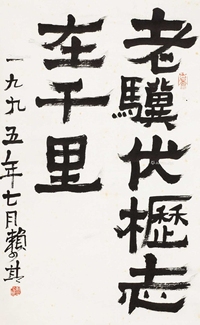 老驥伏櫪志
在千里
一九九五年七月賴少其